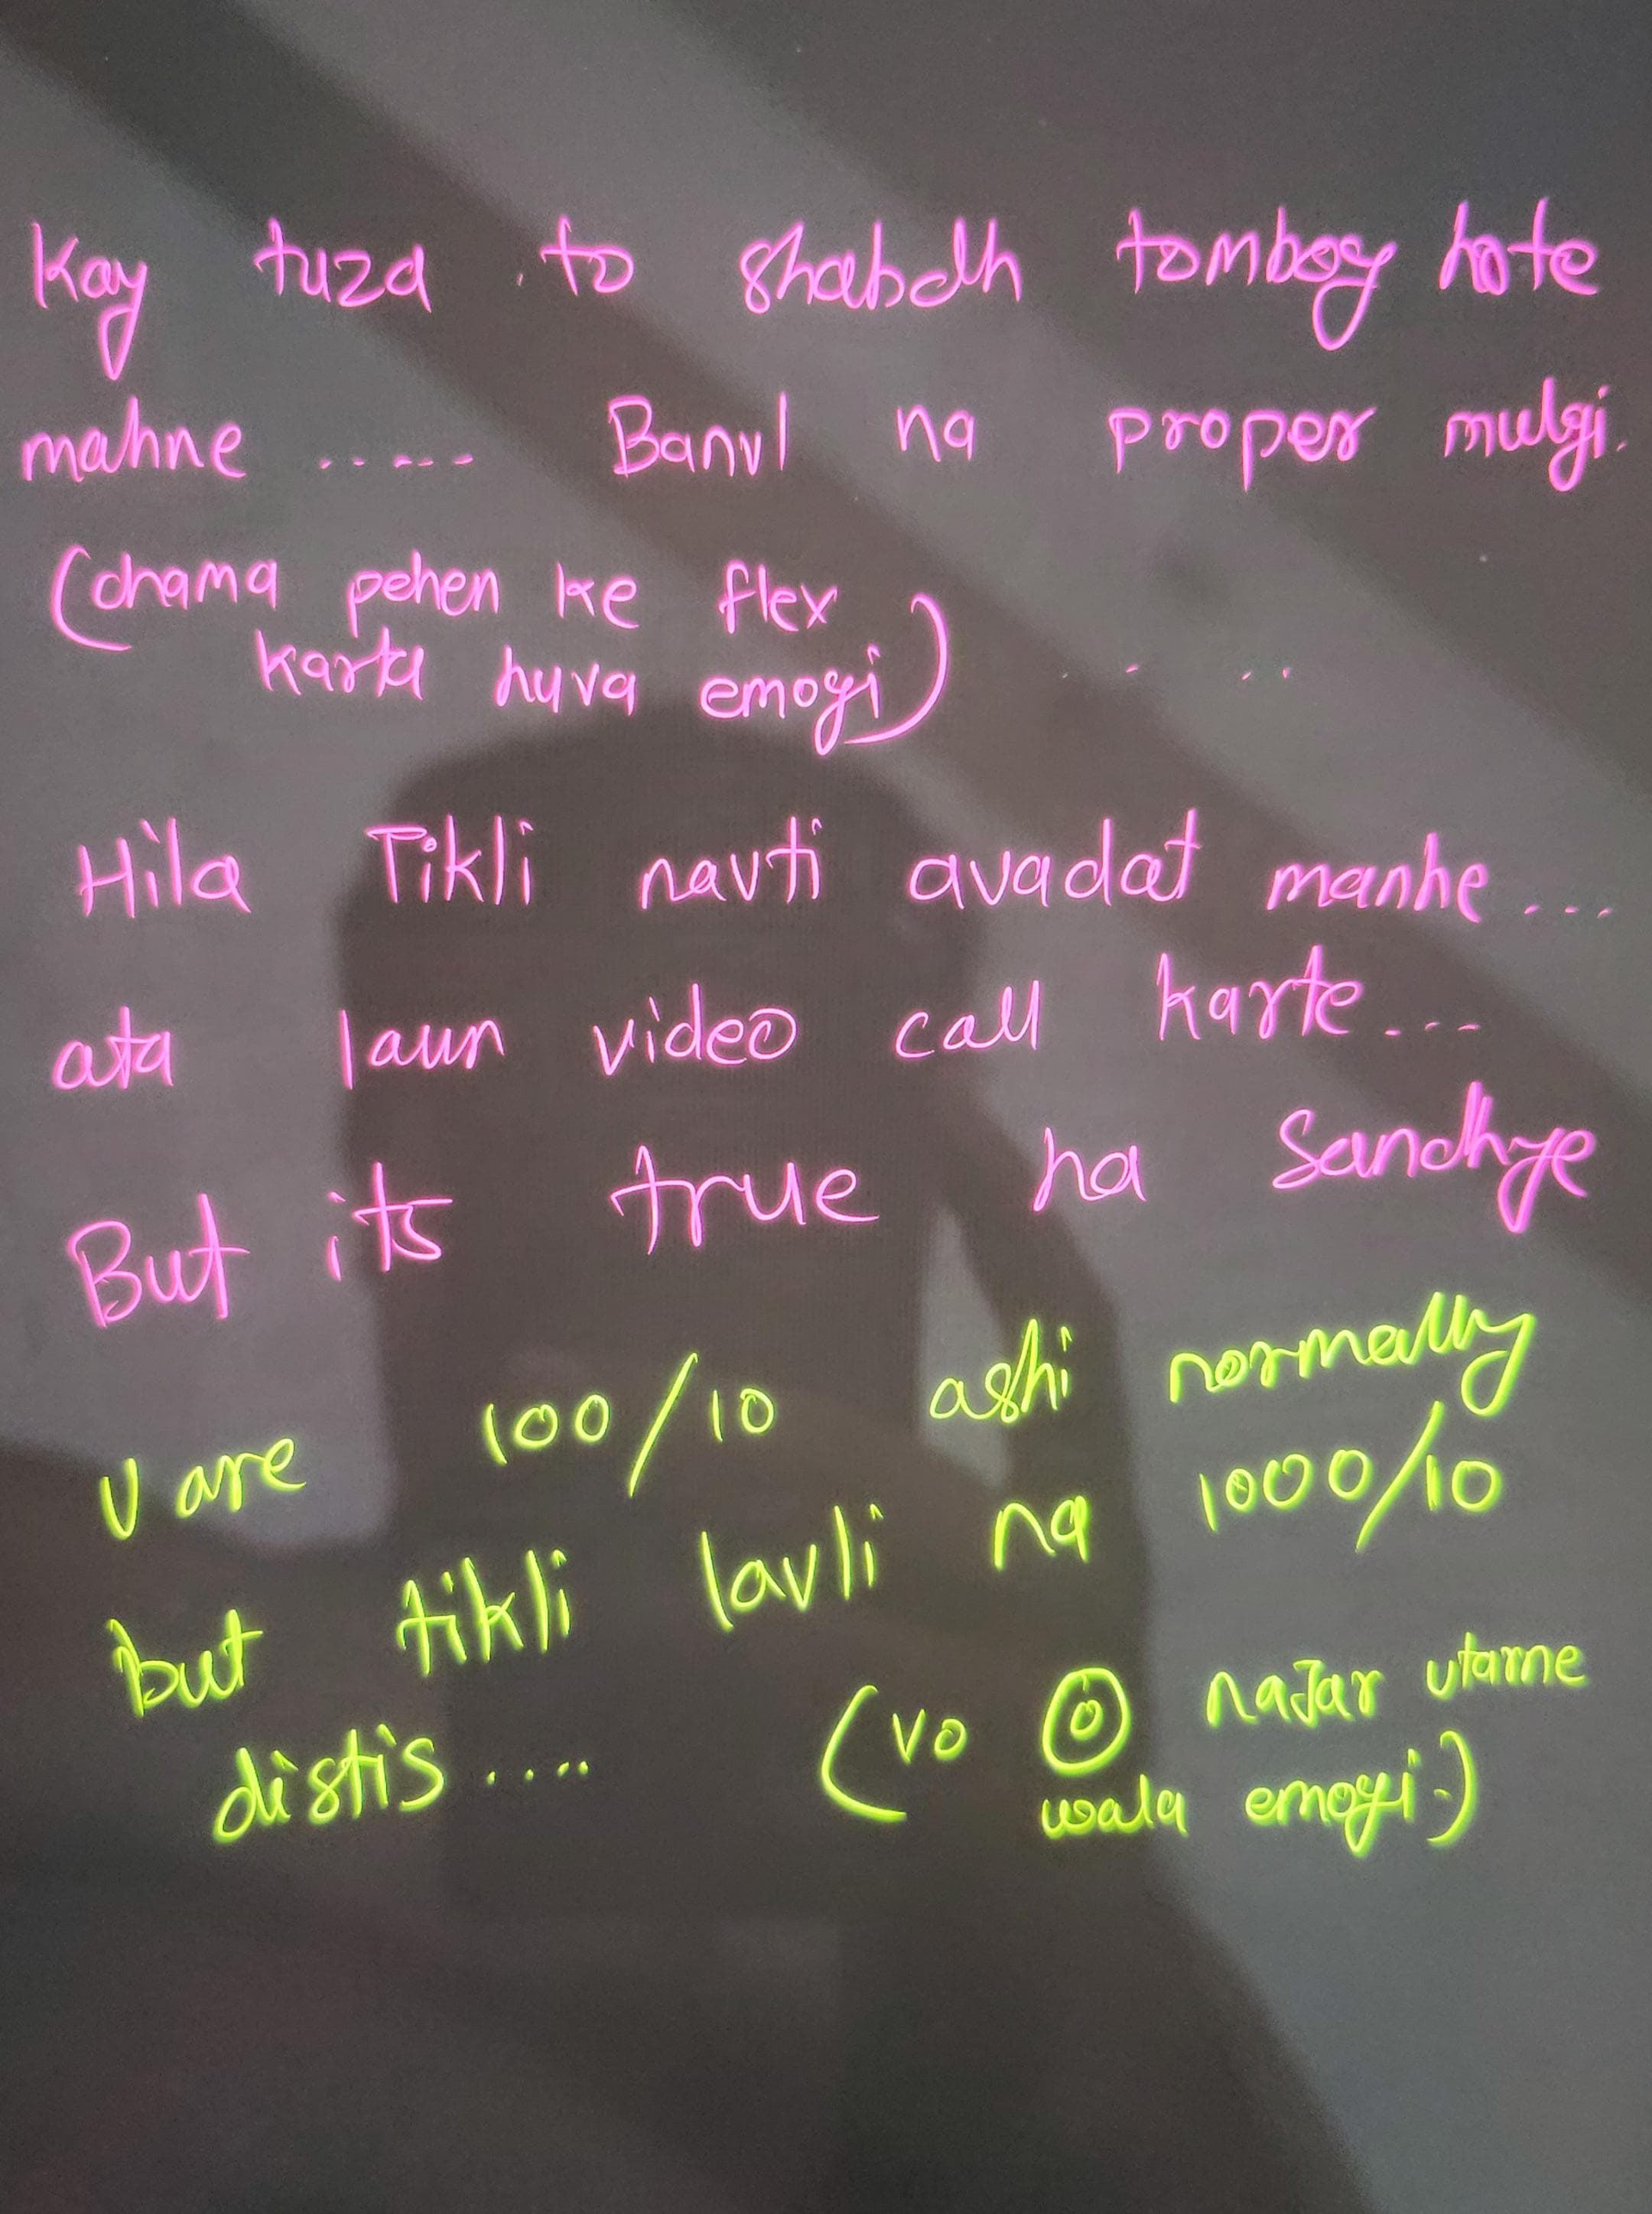 Kay tuza to shabdh tomboy hote
mahne ..... Banvl na proper mulgi.
(chama pehen ke flex
karta huva emogi) . . ..
Hila Tikli navti avadat manhe ...
ata laun video call karte ...
But its true ha Sandhye
U are 100/10 ashi normally
but tikli lavli na 1000/10
distis ..... (vo najar utarne
wala emogi.)